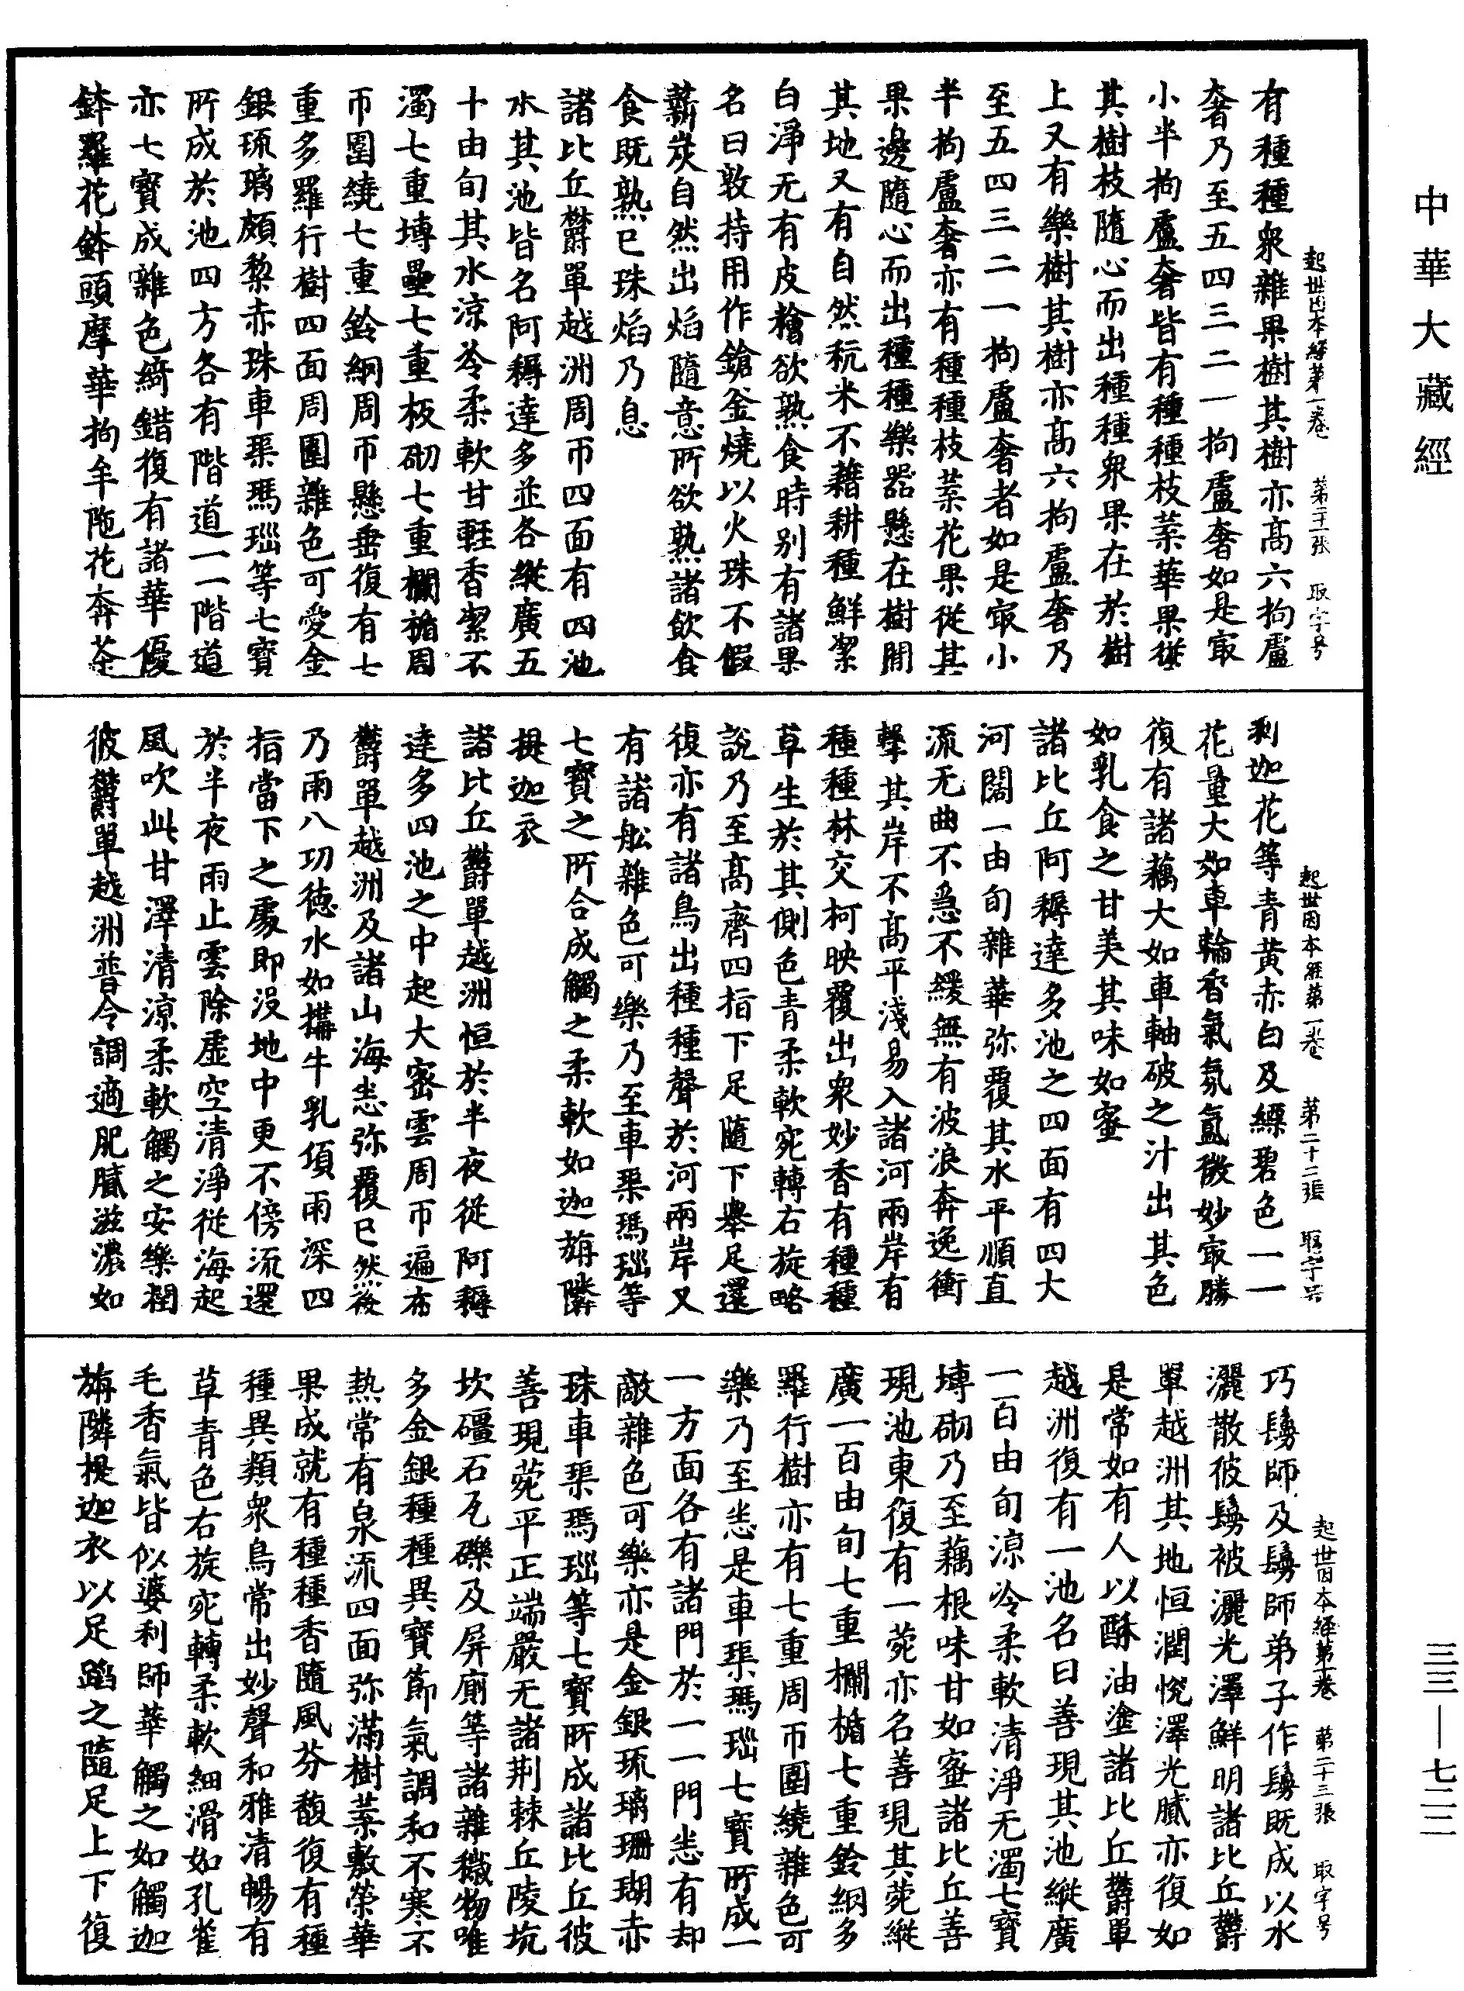 中華大藏經
起世因本經第一卷 第二十一張 取字号
有種種衆雜果樹其樹亦高六拘盧
奢乃至五四三二一拘盧奢如是㝡
小半拘盧奢皆有種種枝葉華果從
其樹枝隨心而出種種衆果在於樹
上又有樂樹其樹亦高六拘盧奢乃
至五四三二一拘盧奢者如是㝡小
半拘盧奢亦有種種枝葉花果從其
果邊隨心而出種種樂器懸在樹閒
其地又有自然秔米不藉耕種鮮潔
白淨无有皮糩欲熟食時別有諸果
名曰敦持用作鎗釜燒以火珠不假
薪炭自然出焰隨意所欲熟諸飲食
食既熟已珠焰乃息
諸比丘欝單越洲周帀四面有四池
水其池皆名阿耨達多並各縱廣五
十由旬其水涼冷柔軟甘輕香潔不
濁七重塼壘七重板砌七重欄楯周
帀圍繞七重鈴網周帀懸垂復有七
重多羅行樹四面周圍雜色可愛金
銀琉璃頗黎赤珠車渠瑪瑙等七寶
所成於池四方各有階道一一階道
亦七寶成雜色綺錯復有諸華優
鉢羅花鉢頭摩華拘牟陁花奔荼
起世因本經第一卷 第二十二張 取字号
利迦花等青黃赤白及縹碧色一一
花量大如車輪香氣氛氳微妙㝡勝
復有諸藕大如車軸破之汁出其色
如乳食之甘美其味如蜜
諸比丘阿耨達多池之四面有四大
河闊一由旬雜華弥覆其水平順直
流无曲不急不緩無有波浪奔逸衝
擊其岸不高平淺易入諸河兩岸有
種種林交柯映覆出衆妙香有種種
草生於其側色青柔軟宛轉右旋略
說乃至高齊四指下足隨下舉足還
復亦有諸鳥出種種聲於河兩岸又
有諸舩雜色可樂乃至車渠瑪瑙等
七寶之所合成觸之柔軟如迦旃隣
提迦衣
諸比丘欝單越洲恒於半夜從阿耨
達多四池之中起大密雲周帀遍布
欝單越洲及諸山海悉弥覆已然後
乃雨八功德水如搆牛乳頃雨深四
指當下之處即没地中更不傍流還
於半夜雨止雲除虛空清淨從海起
風吹此甘澤清涼柔軟觸之安樂潤
彼欝單越洲普令調適肥膩滋濃如
起世因本經第一卷 第二十三張 取字号
巧鬘師及鬘師弟子作鬘既成以水
灑散彼鬘被灑光澤鮮明諸比丘欝
單越洲其地恒潤悅澤光膩亦復如
是常如有人以酥油塗諸比丘欝單
越洲復有一池名曰善現其池縱廣
一百由旬涼冷柔軟清淨无濁七寶
塼砌乃至藕根味甘如蜜諸比丘善
現池東復有一菀亦名善現其菀縱
廣一百由旬七重欄楯七重鈴網多
羅行樹亦有七重周帀圍繞雜色可
樂乃至悉是車渠瑪瑙七寶所成一
一方面各有諸門於一一門悉有却
敵雜色可樂亦是金銀琉璃珊瑚赤
珠車渠瑪瑙等七寶所成諸比丘彼
善現菀平正端嚴无諸荆棘丘陵坑
坎礓石瓦礫及屏廁等諸雜穢物唯
多金銀種種異寶節氣調和不寒不
熱常有泉流四面弥滿樹葉敷榮華
果成就有種種香隨風芬馥復有種
種異類衆鳥常出妙聲和雅清暢有
草青色右旋宛轉柔軟細滑如孔雀
毛香氣皆似婆利師華觸之如觸迦
旃隣提迦衣以足蹈之隨足上下復
三三—七二二